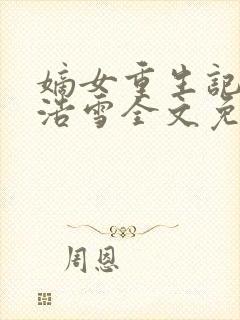 嫡女重生記
浩雪全文免
周恩